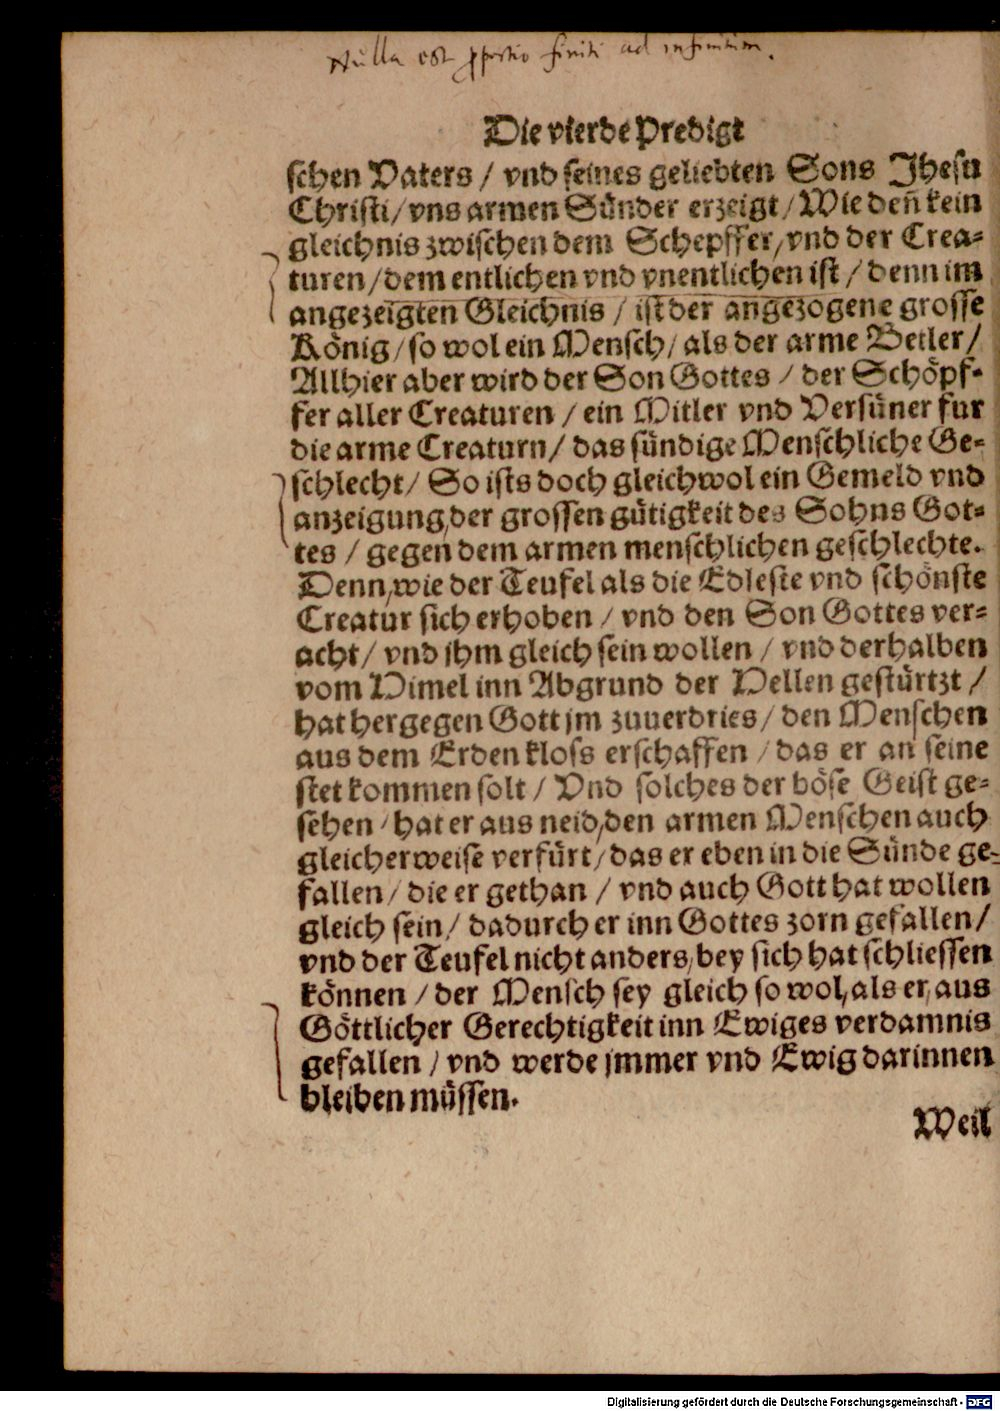 Nulla est proportio finiti ad infinitum.
Die vierde Predigt
schen Vaters / vnd seines geliebten Sons Jhesu
Christi / vns armen Sünder erzeigt / Wie deñ kein
gleichnis zwischen dem Schepffer, vnd der Crea-
turen / dem entlichen vnd vnentlichen ist / denn im
angezeigten Gleichnis / ist der angezogene grosse
König / so wol ein Mensch / als der arme Betler /
Allhier aber wird der Son Gottes / der Schöpf-
fer aller Creaturen / ein Mitler vnd Versüner fur
die arme Creaturn / das sündige Menschliche Ge-
schlecht / So ists doch gleichwol ein Gemeld vnd
anzeigung, der grossen gütigkeit des Sohns Got-
tes / gegen dem armen menschlichen geschlechte.
Denn, wie der Teufel als die Edleste vnd schönste
Creatur sich erhoben / vnd den Son Gottes ver-
acht / vnd jhm gleich sein wollen / vnd derhalben
vom Himel inn Abgrund der Hellen gestürtzt /
hat hergegen Gott jm zuuerdries / den Menschen
aus dem Erden kloss erschaffen / das er an seine
stet kommen solt / Vnd solches der böse Geist ge-
sehen / hat er aus neid, den armen Menschen auch
gleicherweise verfürt / das er eben in die Sünde ge-
fallen / die er gethan / vnd auch Gott hat wollen
gleich sein / dadurch er inn Gottes zorn gefallen /
vnd der Teufel nicht anders, bey sich hat schliessen
können / der Mensch sey gleich so wol, als er, aus
Göttlicher Gerechtigkeit inn Ewiges verdamnis
gefallen / vnd werde jmmer vnd Ewig darinnen
bleiben müssen.
Weil
Digitalisierung gefördert durch die Deutsche Forschungsgemeinschaft - DFG